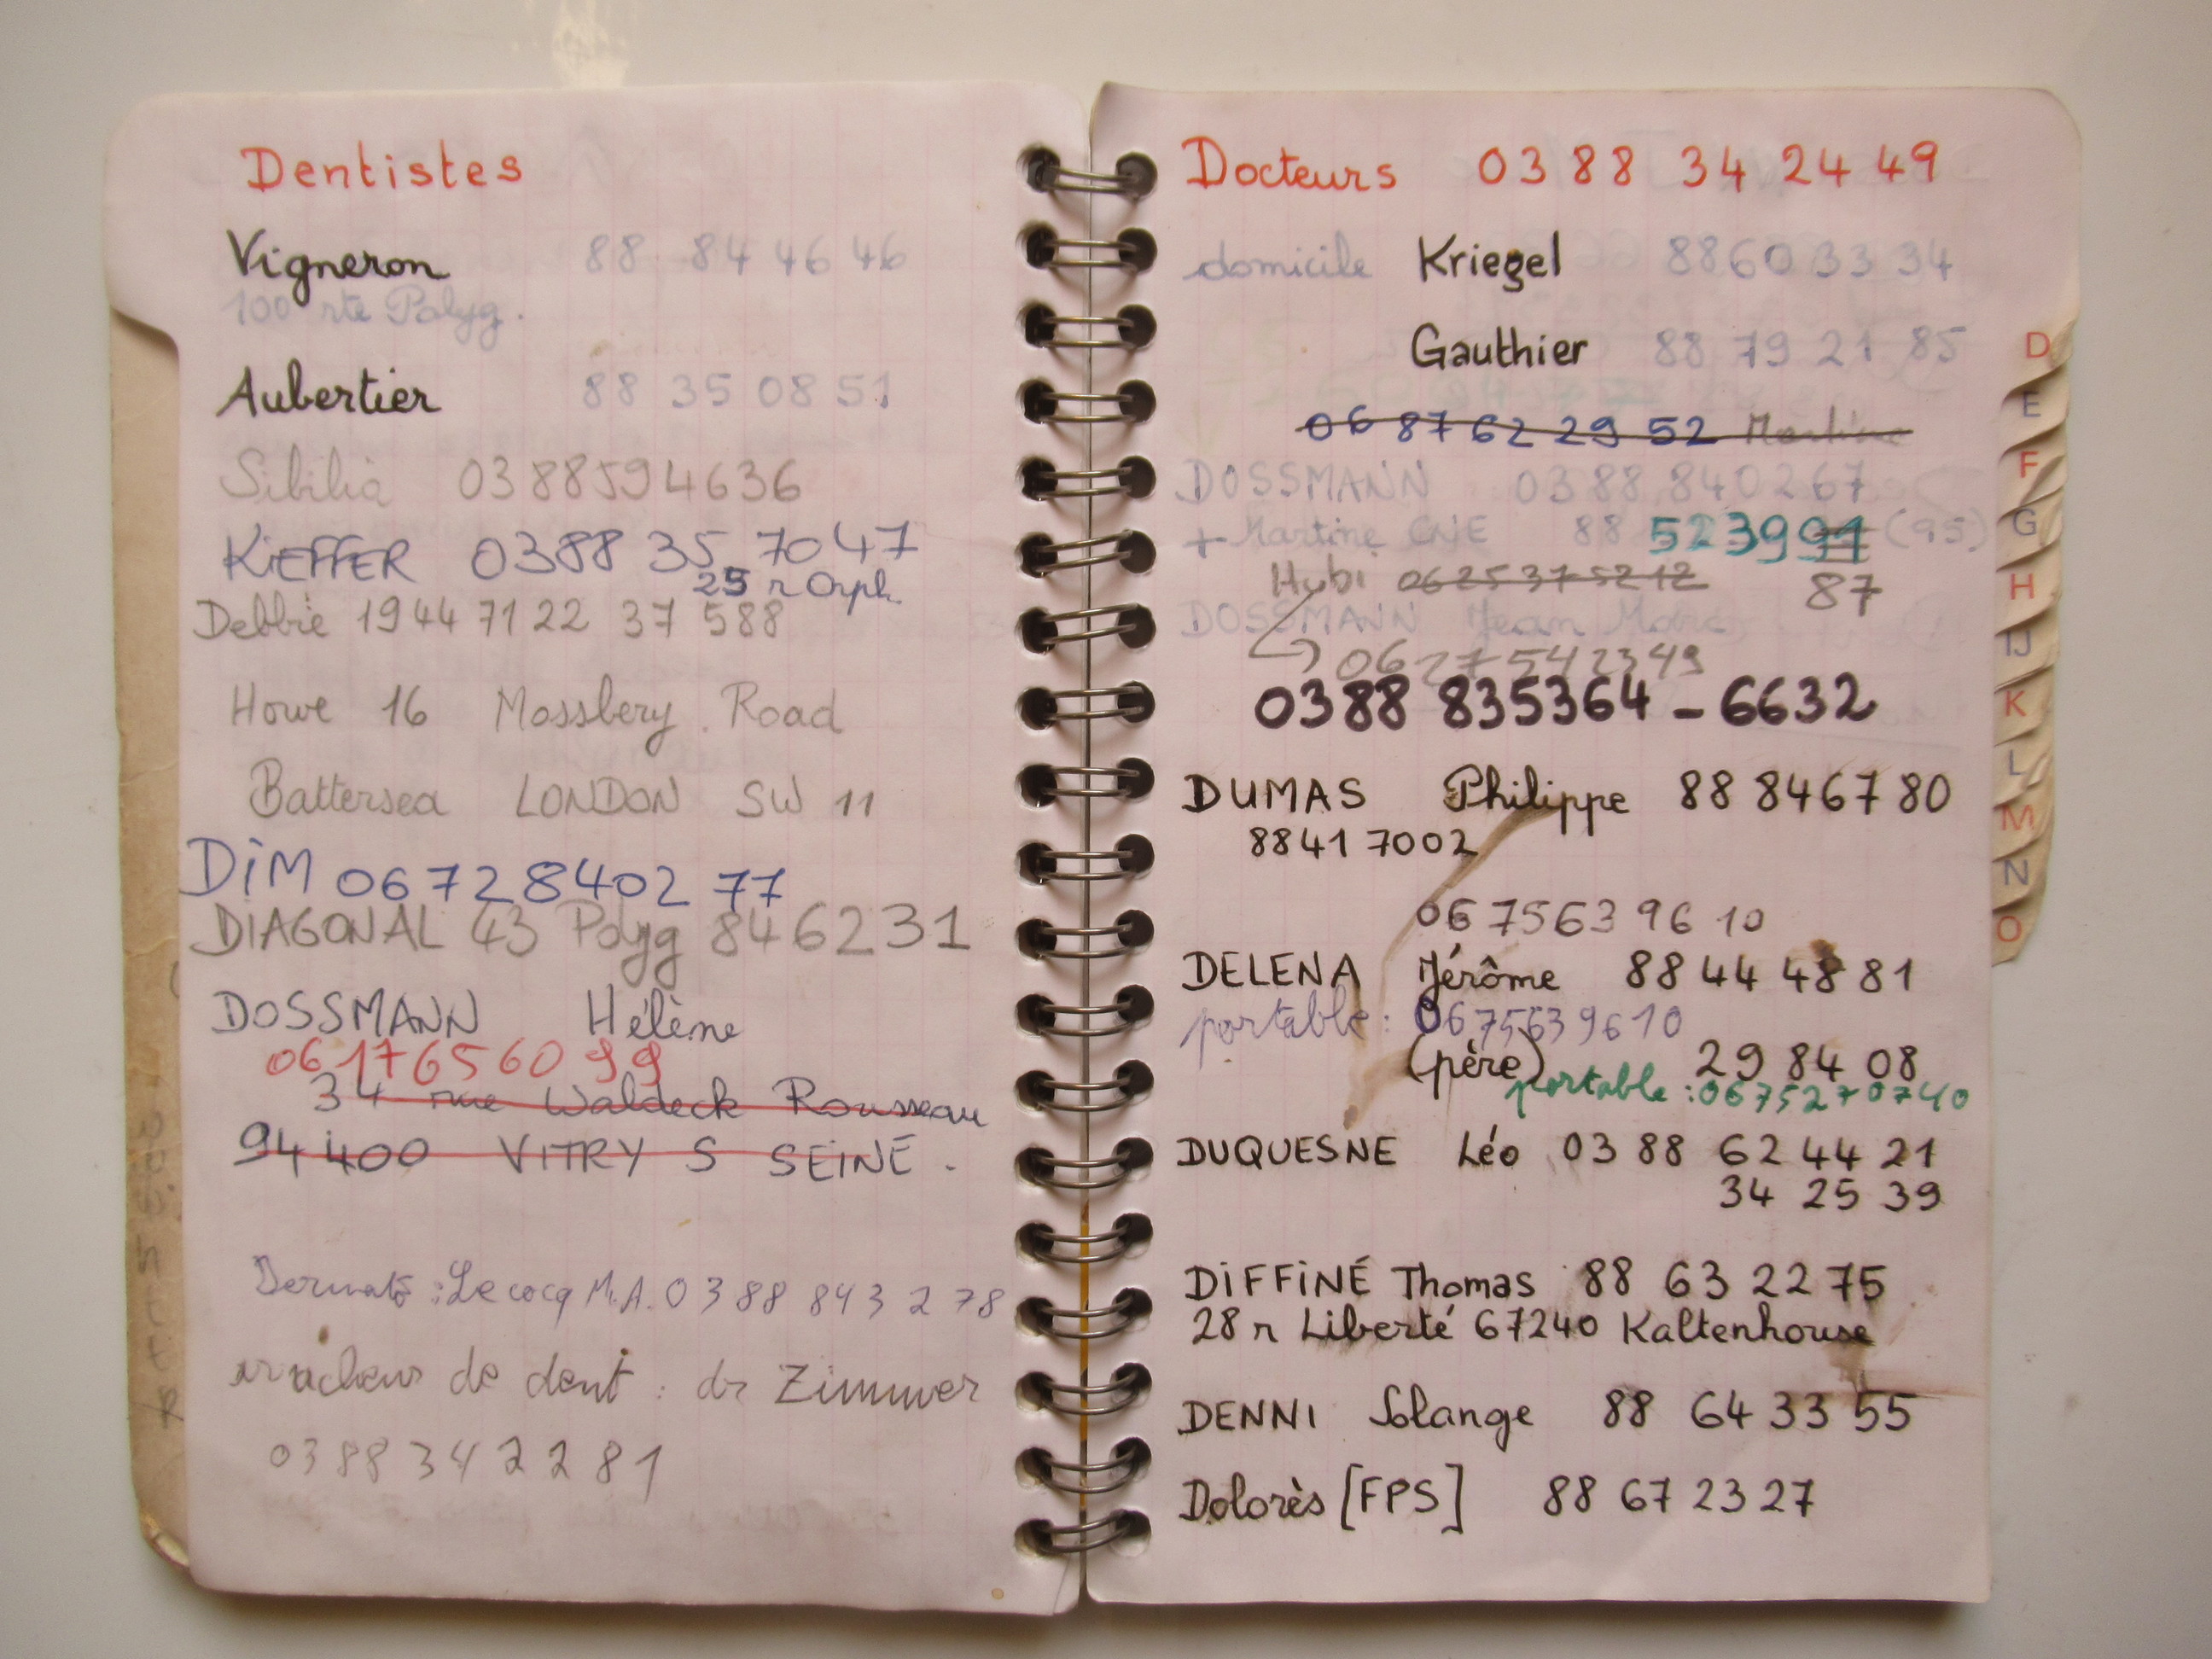 Dentistes
Vigneron 88 84 46 46
100 rte Polyg.
Aubertier 88 35 08 51
Sibilia 0388594636
KiEFFER 0388 35 70 47
25 r Orph.
Debbie 19 44 71 22 37 588
Howe 16 Mossbery Road
Battersea LONDON SW 11
DiM 06 72 8402 77
DIAGONAL 43 Polyg 846231
DOSSMANN Hélène
06 17 65 60 99
34 rue Waldeck Rousseau
94400 VITRY S SEINE.
Dermato : Lecocq M.A. 03 88 843 278
arracheur de dent : dr Zimmer
03 88 34 22 81
Docteurs 03 88 34 24 49
domicile Kriegel 88 60 33 34
Gauthier 88 79 21 85
06 87 62 29 52 Martine
DOSSMANN 03 88 84 02 67
+ Martine CNE 88 523991 (95)
Hubi 06 25 37 52 12 87
DOSSMANN Jean Marc
06 27 54 23 49
0388 835364 - 6632
DUMAS Philippe 88 84 67 80
88 41 70 02
06 75 63 96 10
DELENA Jérôme 88 44 48 81
portable : 06 75 63 96 10
(père) 29 84 08
portable : 06 75 27 07 40
DUQUESNE Léo 03 88 62 44 21
34 25 39
DiFFiNÉ Thomas 88 63 22 75
28 r Liberté 67240 Kaltenhouse
DENNI Solange 88 64 33 55
Dolorès [FPS] 88 67 23 27
D
E
F
G
H
IJ
K
L
M
N
O